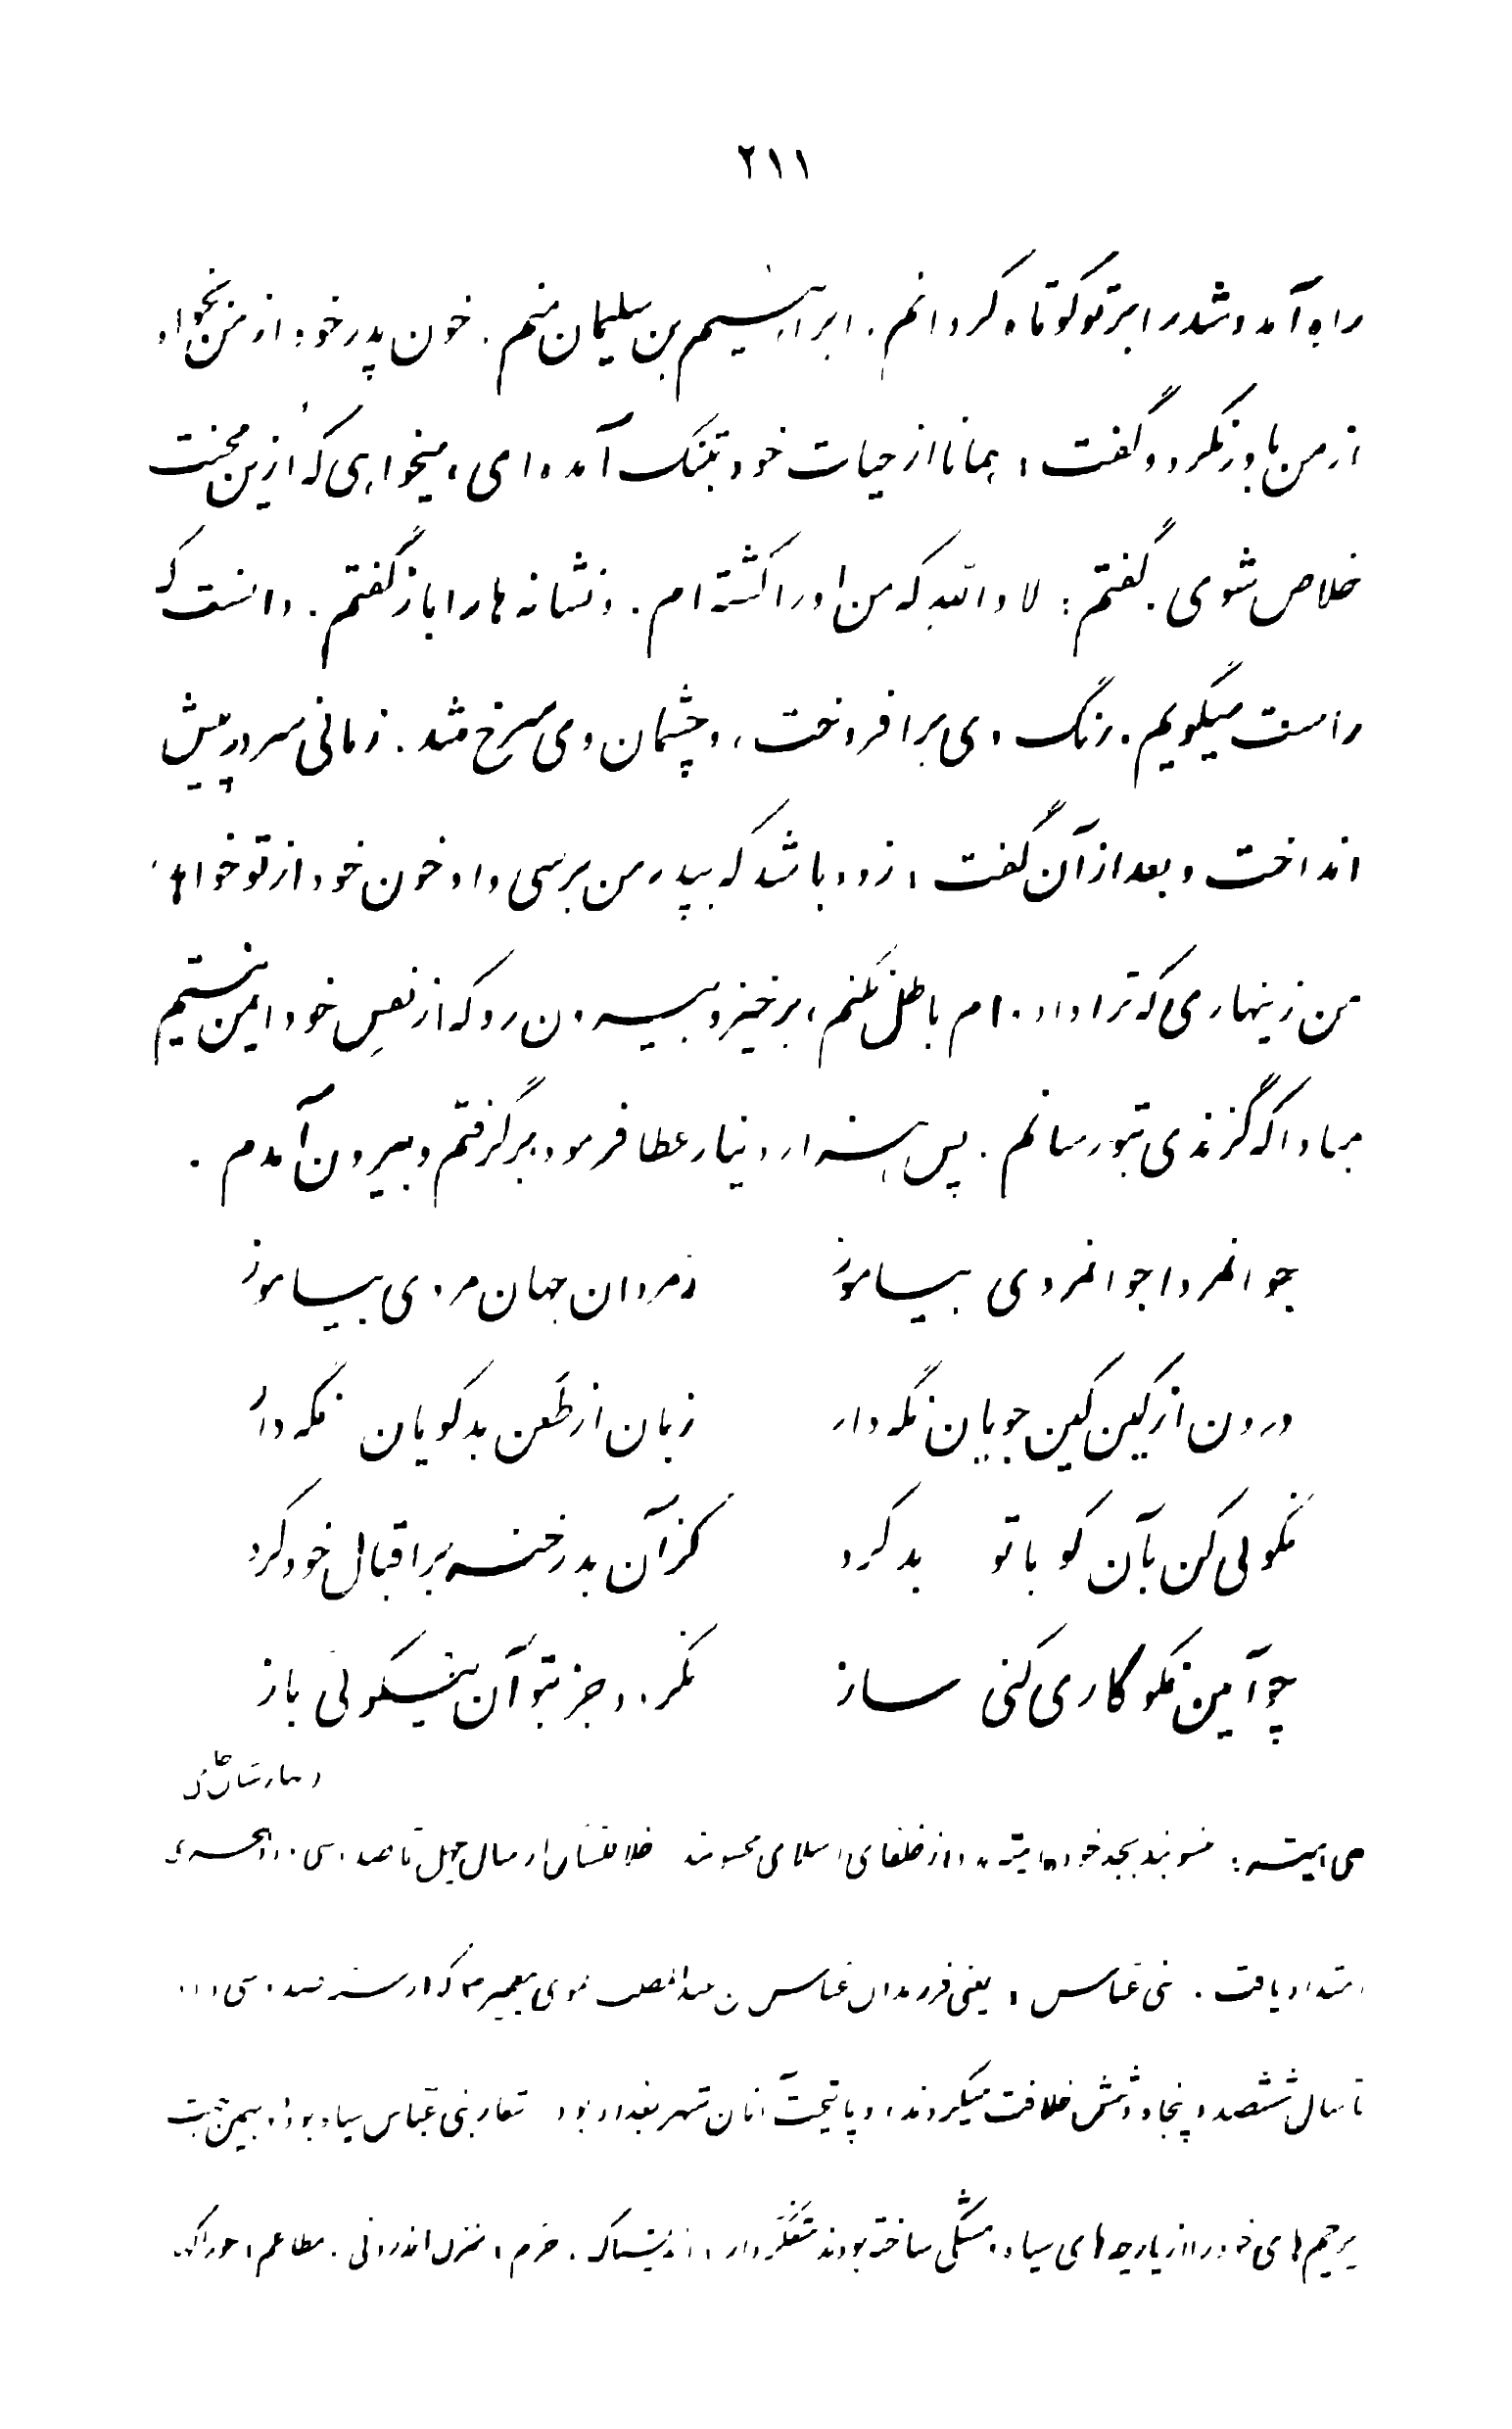 ۲۱۱
راه آمد و شد را بر تو کوتاه گردانم. ابراهیم بن سلیمان منم. خون پدر خود از من بخواه
از من باور نکرد و گفت، همانا از حیات خود بتنگ آمده‌ای، میخواهی که ازین محنت
خلاص شوی. گفتم: لا والله که من او را کشته‌ام. و نشانه‌ها را باز گفتم. دانست که
راست میگویم. رنگ وی برافروخت، و چشمان وی سرخ شد. زمانی سر در پیش
انداخت و بعد از آن گفت، زود باشد که بپدر من برسی و او خون خود از تو خواهد
من زینهاری که ترا داده‌ام باطل نکنم، برخیز و بیرون رو که از نفس خود ایمن نیستیم
مبادا که گزندی بتو رسانم. پس هزار دینار عطا فرمود برگرفتم و بیرون آمدم.
جوانمردا جوانمردی بیاموز زمردان جهان مردی بیاموز
درون از کین کین جویان نگه دار زبان از طعن بدگویان نگه دار
نکوئی کن بآن کو با تو بد کرد کزآن بد رخنه بر اقبال خود کرد
چو آیین نکوکاری کنی ساز نگردد جز بتو آن نیکوئی باز
بهارستان جامی
بنی امیه: منسوبند بجد خود امیه و از خلفای اسلامی محسوبند خلافتشان از سال چهل تا صد و سی و دو هجری
امتداد یافت. بنی عباس، یعنی فرزندان عباس بن عبدالمطلب عموی پیغمبر که از سنه صد و سی و دو
تا سال ششصد و پنجاه و شش خلافت میکردند، و پایتخت آنان شهر بغداد بود شعار بنی عباس سیاه بود، بهمین جهت
پرچم‌های خود را از پارچه‌های سیاه و مشکی ساخته بودند متفکروار، اندیشناک. حرم، منزل اندرونی. مطاعم، خوراک